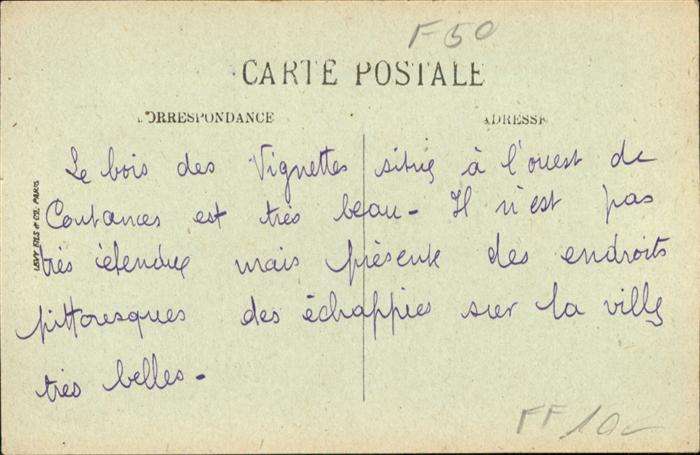 F 50
CARTE POSTALE
CORRESPONDANCE
ADRESSE
Le bois des Vignettes situé à l'ouest de
Coutances est très beau - Il n'est pas
très étendue mais présente des endroits
pittoresques des échappées sur la ville
très belles -
LEVY FILS & CIE. PARIS
FF 10